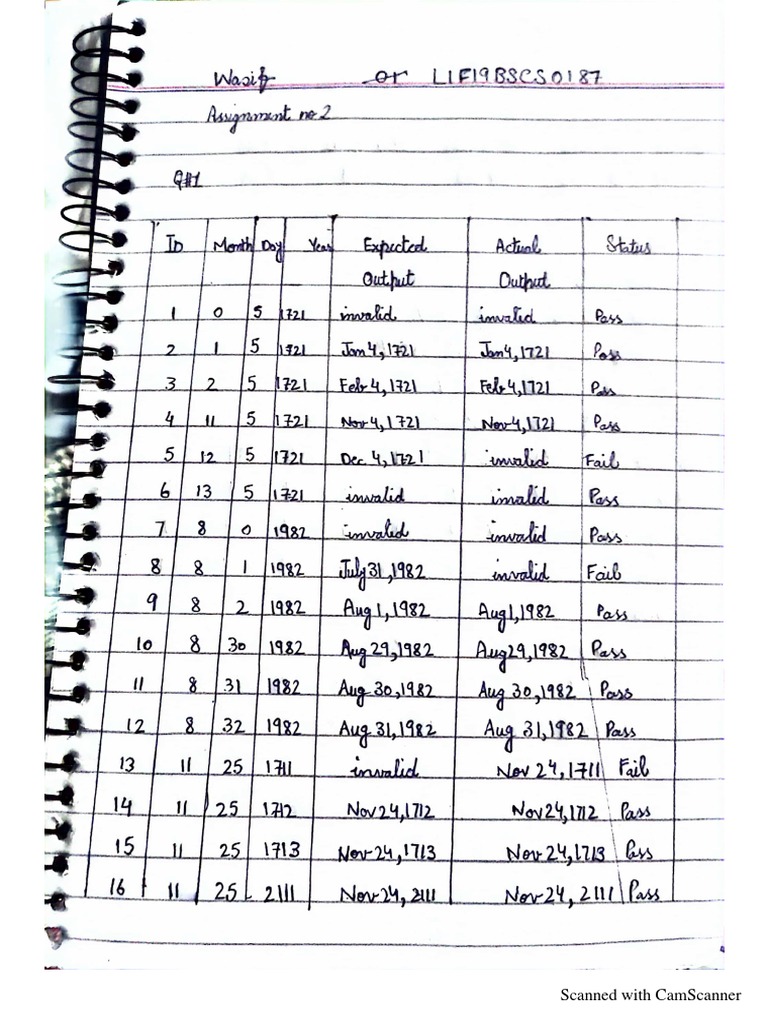 Wasif or L1F19BSCS0187
Assignment no 2
Q#1
ID Month Day Year Expected Output Actual Output Status
1 0 5 1721 invalid invalid Pass
2 1 5 1721 Jan 4, 1721 Jan 4, 1721 Pass
3 2 5 1721 Feb 4, 1721 Feb 4, 1721 Pass
4 11 5 1721 Nov 4, 1721 Nov 4, 1721 Pass
5 12 5 1721 Dec 4, 1721 invalid Fail
6 13 5 1721 invalid invalid Pass
7 8 0 1982 invalid invalid Pass
8 8 1 1982 July 31, 1982 invalid Fail
9 8 2 1982 Aug 1, 1982 Aug 1, 1982 Pass
10 8 30 1982 Aug 29, 1982 Aug 29, 1982 Pass
11 8 31 1982 Aug 30, 1982 Aug 30, 1982 Pass
12 8 32 1982 Aug 31, 1982 Aug 31, 1982 Pass
13 11 25 1711 invalid Nov 24, 1711 Fail
14 11 25 1712 Nov 24, 1712 Nov 24, 1712 Pass
15 11 25 1713 Nov 24, 1713 Nov 24, 1713 Pass
16 11 25 2111 Nov 24, 2111 Nov 24, 2111 Pass
Scanned with CamScanner